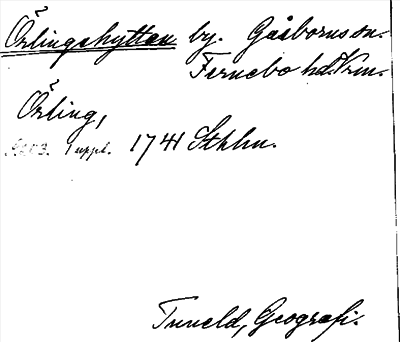 Örlingshyttan by. Gåsborns sn.
Fernebo hd. Vrm.
Örling,
1 uppl. 1741 Sthlm.
Tuneld, Geografi.